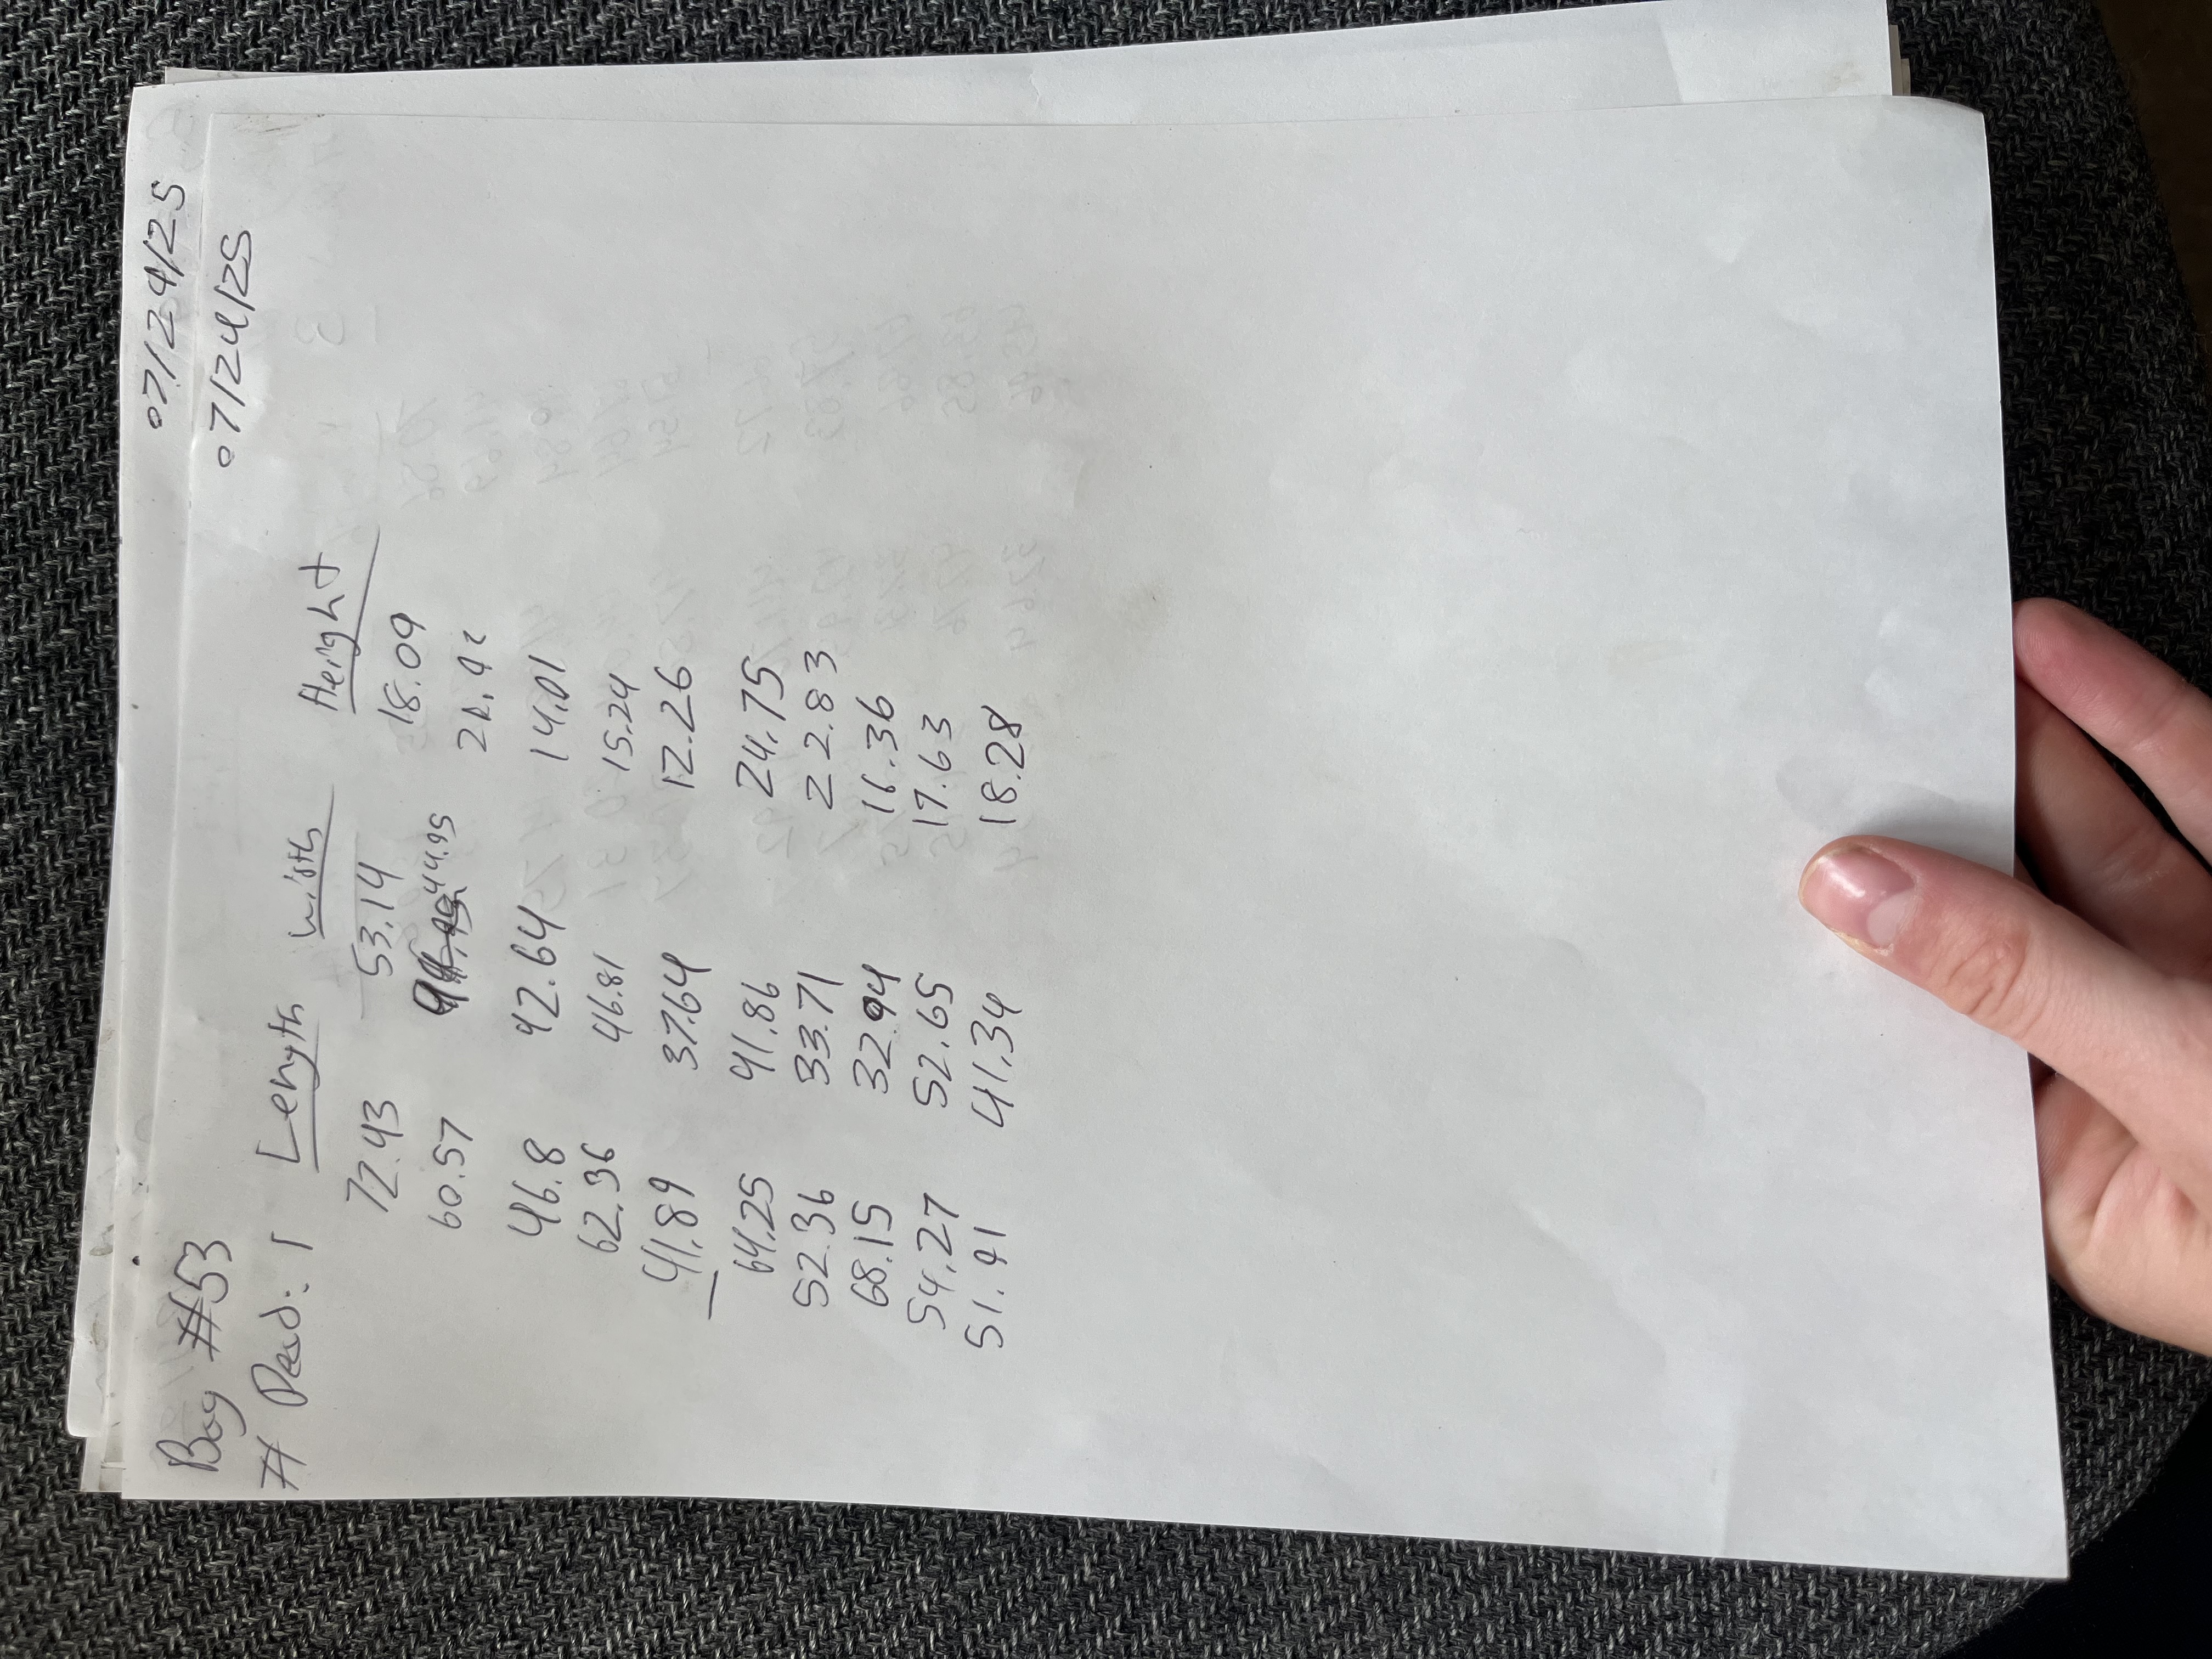 07/24/25
Bag #53 07/24/25
# Dead: 1 Length Width Height
72.43 53.14 18.09
60.57 44.95
46.8 42.64 14.01
62.36 46.81 15.24
41.89 37.64 12.26
64.25 41.86 24.75
52.36 33.71 22.83
68.15 32.94 16.36
54.27 52.65 17.63
51.41 41.34 18.28